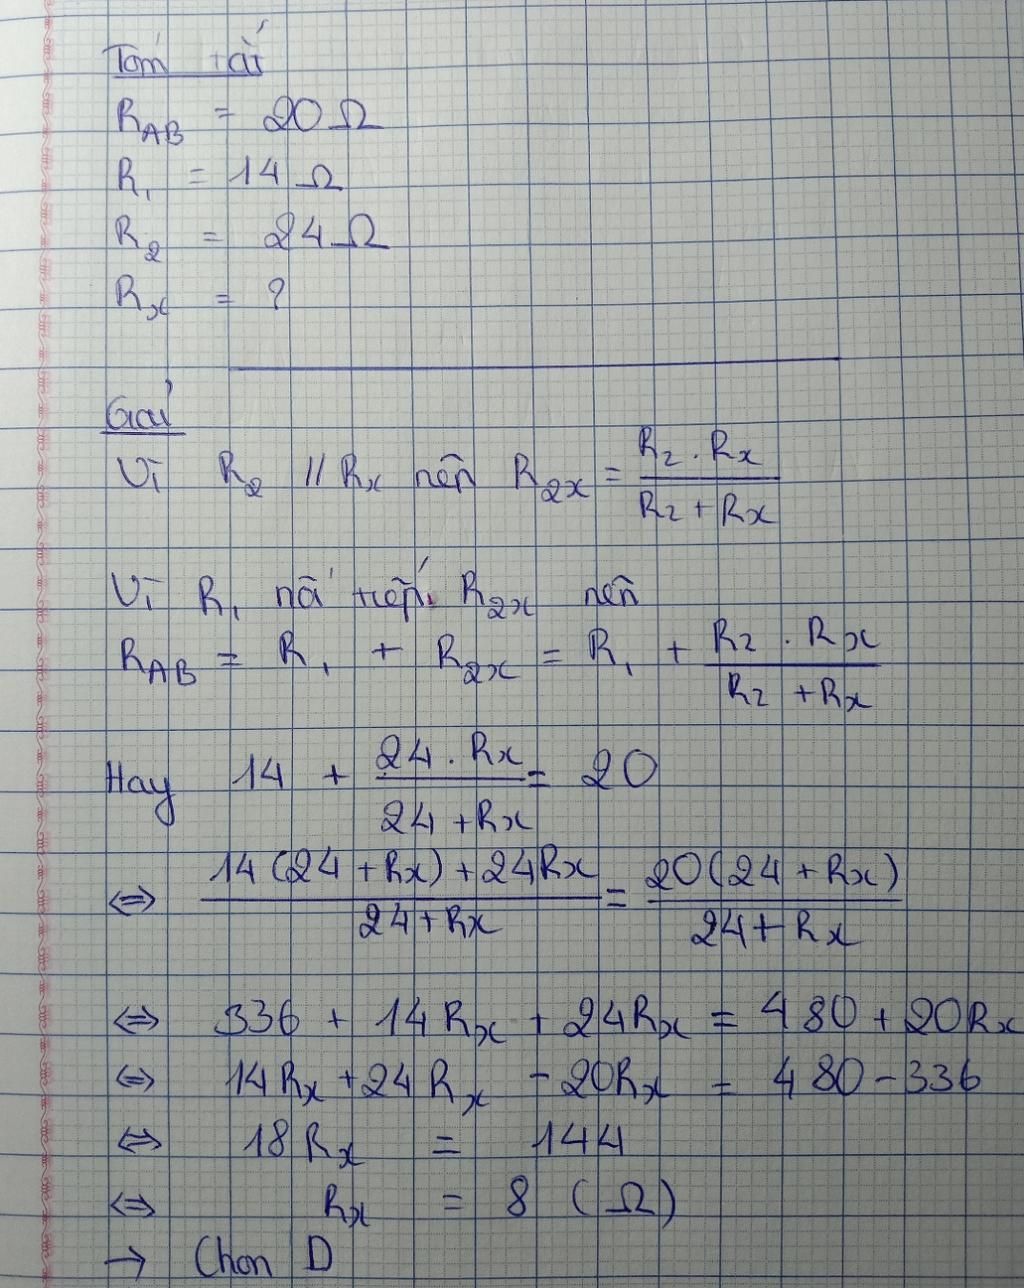 Tóm tắt
R_AB = 20 Ω
R_1 = 14 Ω
R_2 = 24 Ω
R_x = ?
Giải
Vì R_2 // R_x nên R_2x = (R_2 . R_x)/(R_2 + R_x)
Vì R_1 nối tiếp R_2x nên
R_AB = R_1 + R_2x = R_1 + (R_2 . R_x)/(R_2 + R_x)
Hay 14 + (24 . R_x)/(24 + R_x) = 20
⇔ (14(24 + R_x) + 24R_x)/(24 + R_x) = (20(24 + R_x))/(24 + R_x)
⇔ 336 + 14R_x + 24R_x = 480 + 20R_x
⇔ 14R_x + 24R_x - 20R_x = 480 - 336
⇔ 18R_x = 144
⇔ R_x = 8 (Ω)
→ Chọn D